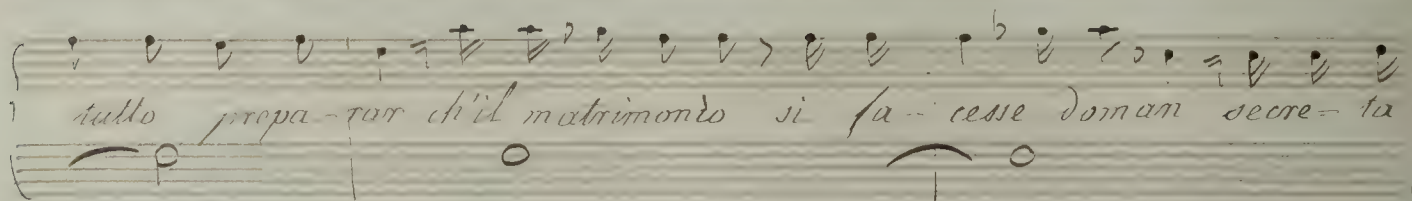 tutto prepa-rar ch'il matrimonio si fa-cesse doman secre-ta